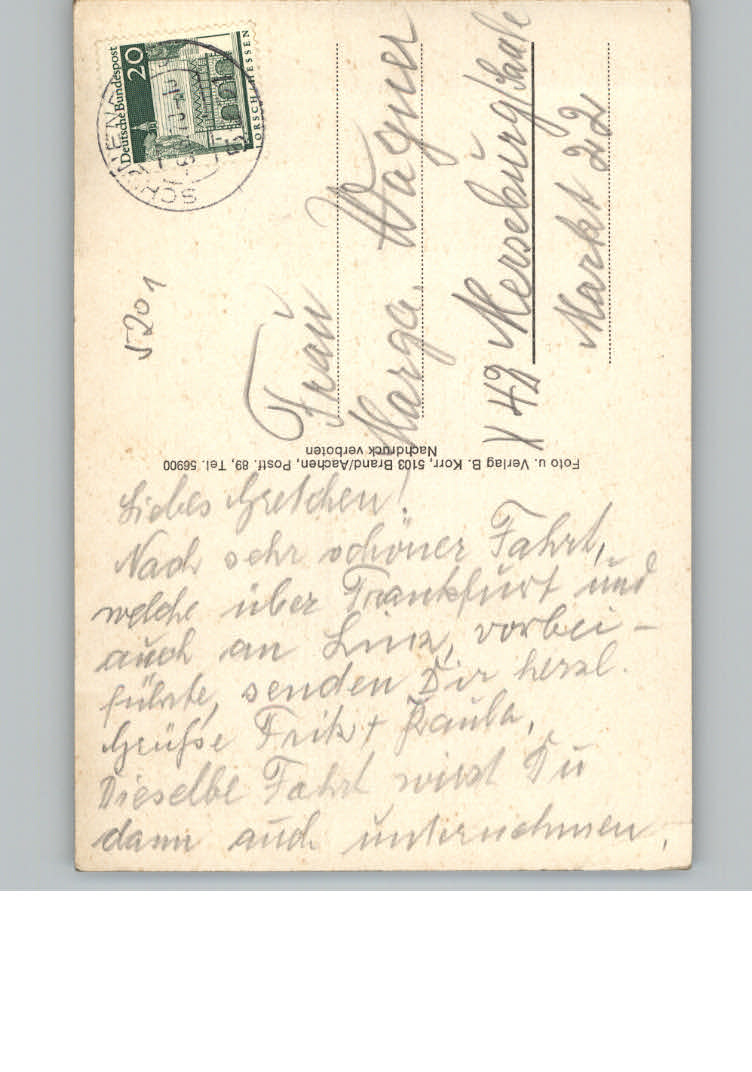 Deutsche Bundespost
20
LORSCH/HESSEN
5201
Frau
Marga. Wagner
X 42 Merseburg/Saale
Markt 22
Foto u. Verlag B. Korr, 5103 Brand/Aachen, Postf. 89, Tel. 56900
Nachdruck verboten
Liebes Gretchen!
Nach sehr schöner Fahrt,
welche über Frankfurt und
auch an Linz, vorbei-
führte, senden Dir herzl.
Grüße Fritz + Paula,
Dieselbe Fahrt wirst Du
dann auch unternehmen.